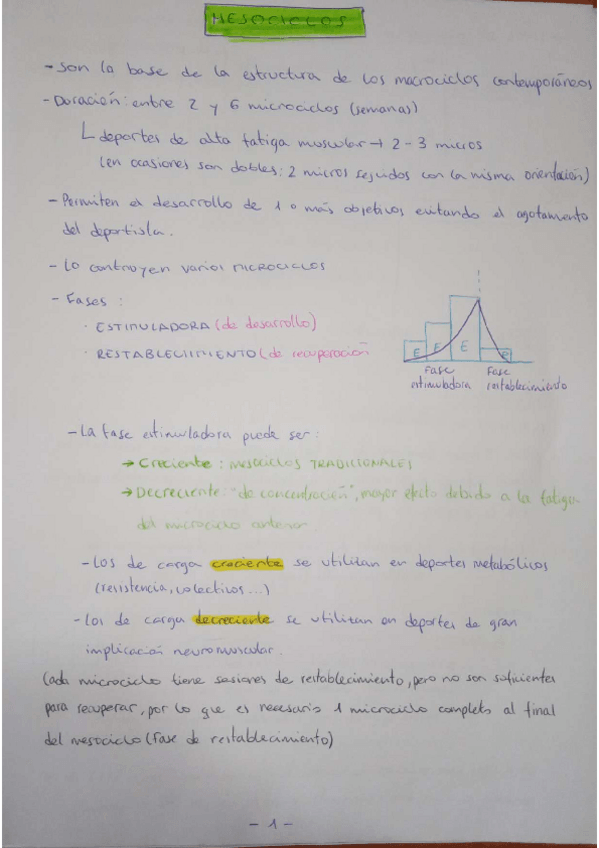 MESOCICLOS
- Son la base de la estructura de los macrociclos contemporáneos
- Duración: entre 2 y 6 microciclos (semanas)
└ deportes de alta fatiga muscular → 2-3 micros
(en ocasiones son dobles: 2 micros seguidos con la misma orientación)
- Permiten el desarrollo de 1 o más objetivos evitando el agotamento
del deportista.
- Lo contruyen varios microciclos
- Fases:
· ESTIMULADORA (de desarrollo)
· RESTABLECIMIENTO (de recuperación
E E E R
Fase estimuladora
Fase restablecimiento
- La fase estimuladora puede ser:
→ Creciente: mesociclos TRADICIONALES
→ Decreciente: "de concentración", mayor efecto debido a la fatiga
del microciclo anterior
- Los de carga creciente se utilitan en deportes metabólicos
(resistencia, colectivos...)
- Los de carga decreciente se utilitan en deportes de gran
implicación neuromuscular.
Cada microciclo tiene sesiones de restablecimiento, pero no son suficientes
para recuperar, por lo que es necesario 1 microciclo completo al final
del mesociclo (fase de restablecimiento)
- 1 -